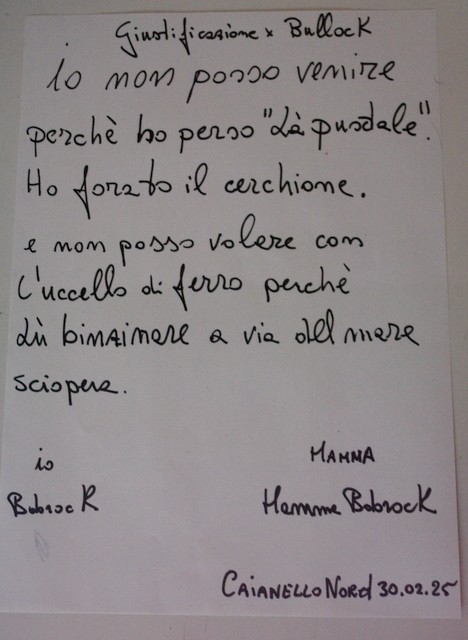 Giustificazione x Bullock
io non posso venire
perchè ho perso "Là pusdale".
Ho forato il cerchione.
e non posso volare con
L'uccello di ferro perchè
Lù binaimare a via dell mare
sciopera.
io
BobrocK
MAMMA
Mamma BobrocK
CAIANELLO NORd 30.02.25